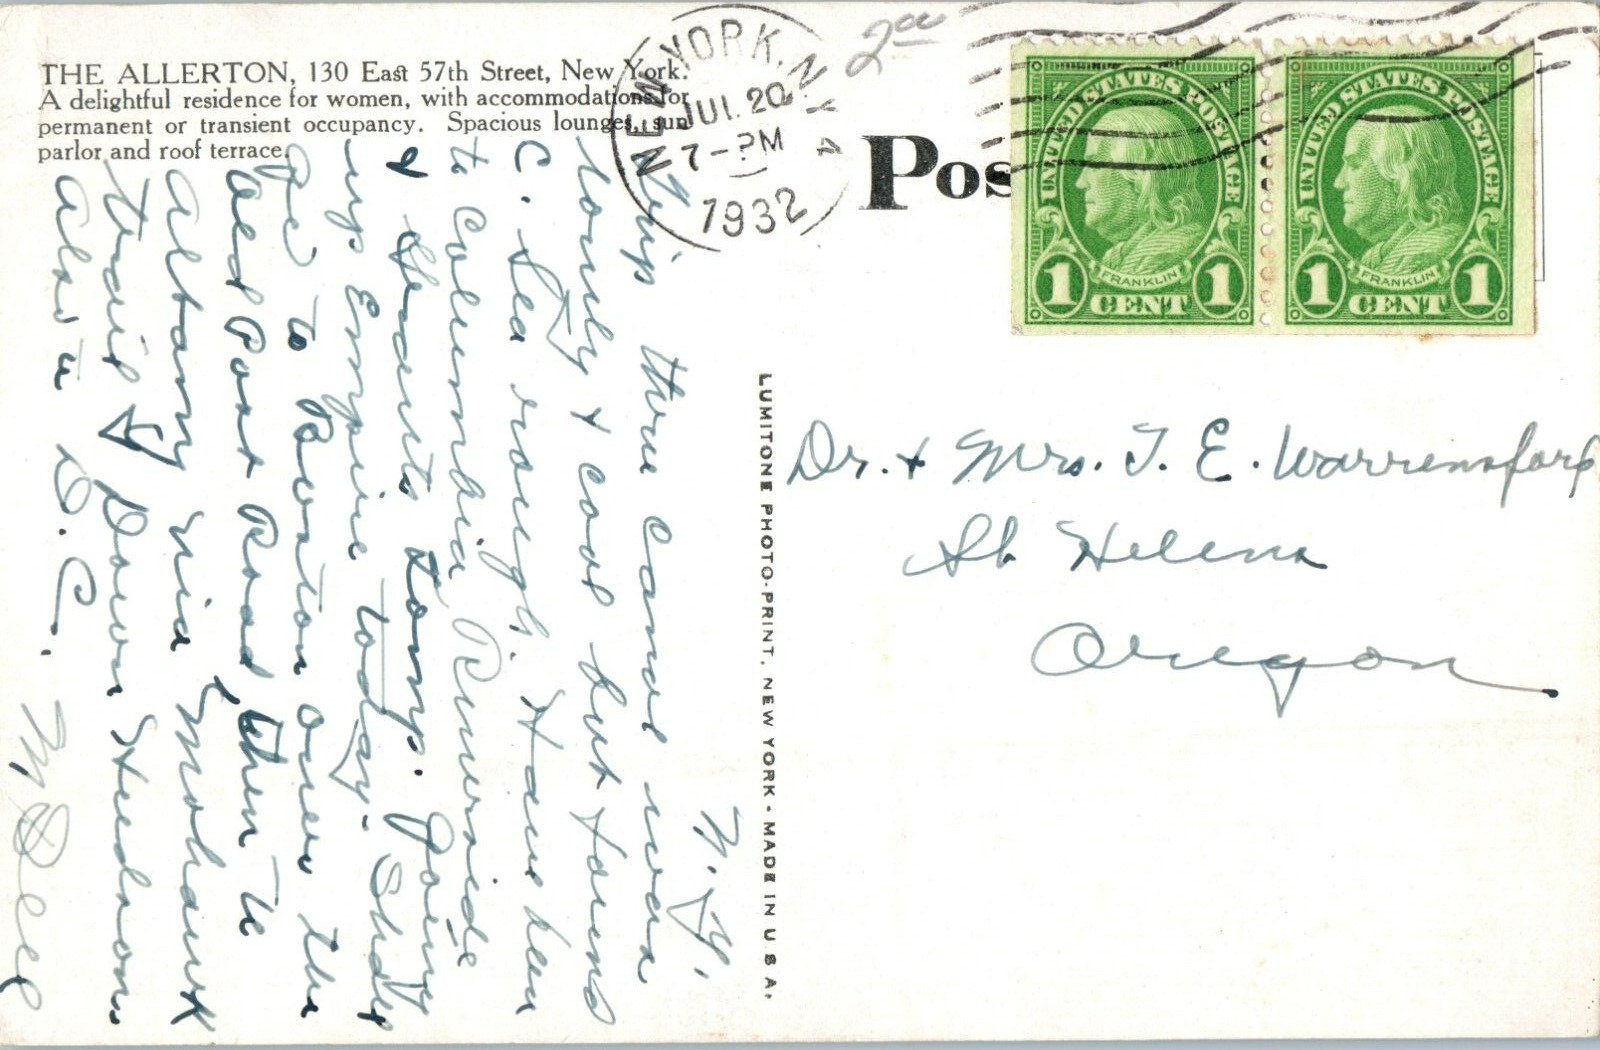 THE ALLERTON, 130 East 57th Street, New York.
A delightful residence for women, with accommodations for
permanent or transient occupancy. Spacious lounges, sun
parlor and roof terrace.
NEW YORK, N.Y.
JUL 20
7-PM
1932
200
Pos
UNITED STATES POSTAGE
FRANKLIN
1 CENT 1
UNITED STATES POSTAGE
FRANKLIN
1 CENT 1
N.Y.
Trip thru canal was
lovely & cool but found
C. Sea rough. Have been
to Columbia Riverside
&
up Empire today. Shady
to Boston over the
Old Post Road, then to
Albany via Mohawk
trail & Down Hudson.
Also to D.C.
LUMITONE PHOTO-PRINT. NEW YORK - MADE IN U S A.
Dr. & Mrs. T. E. Warrensford
St Helens
Oregon